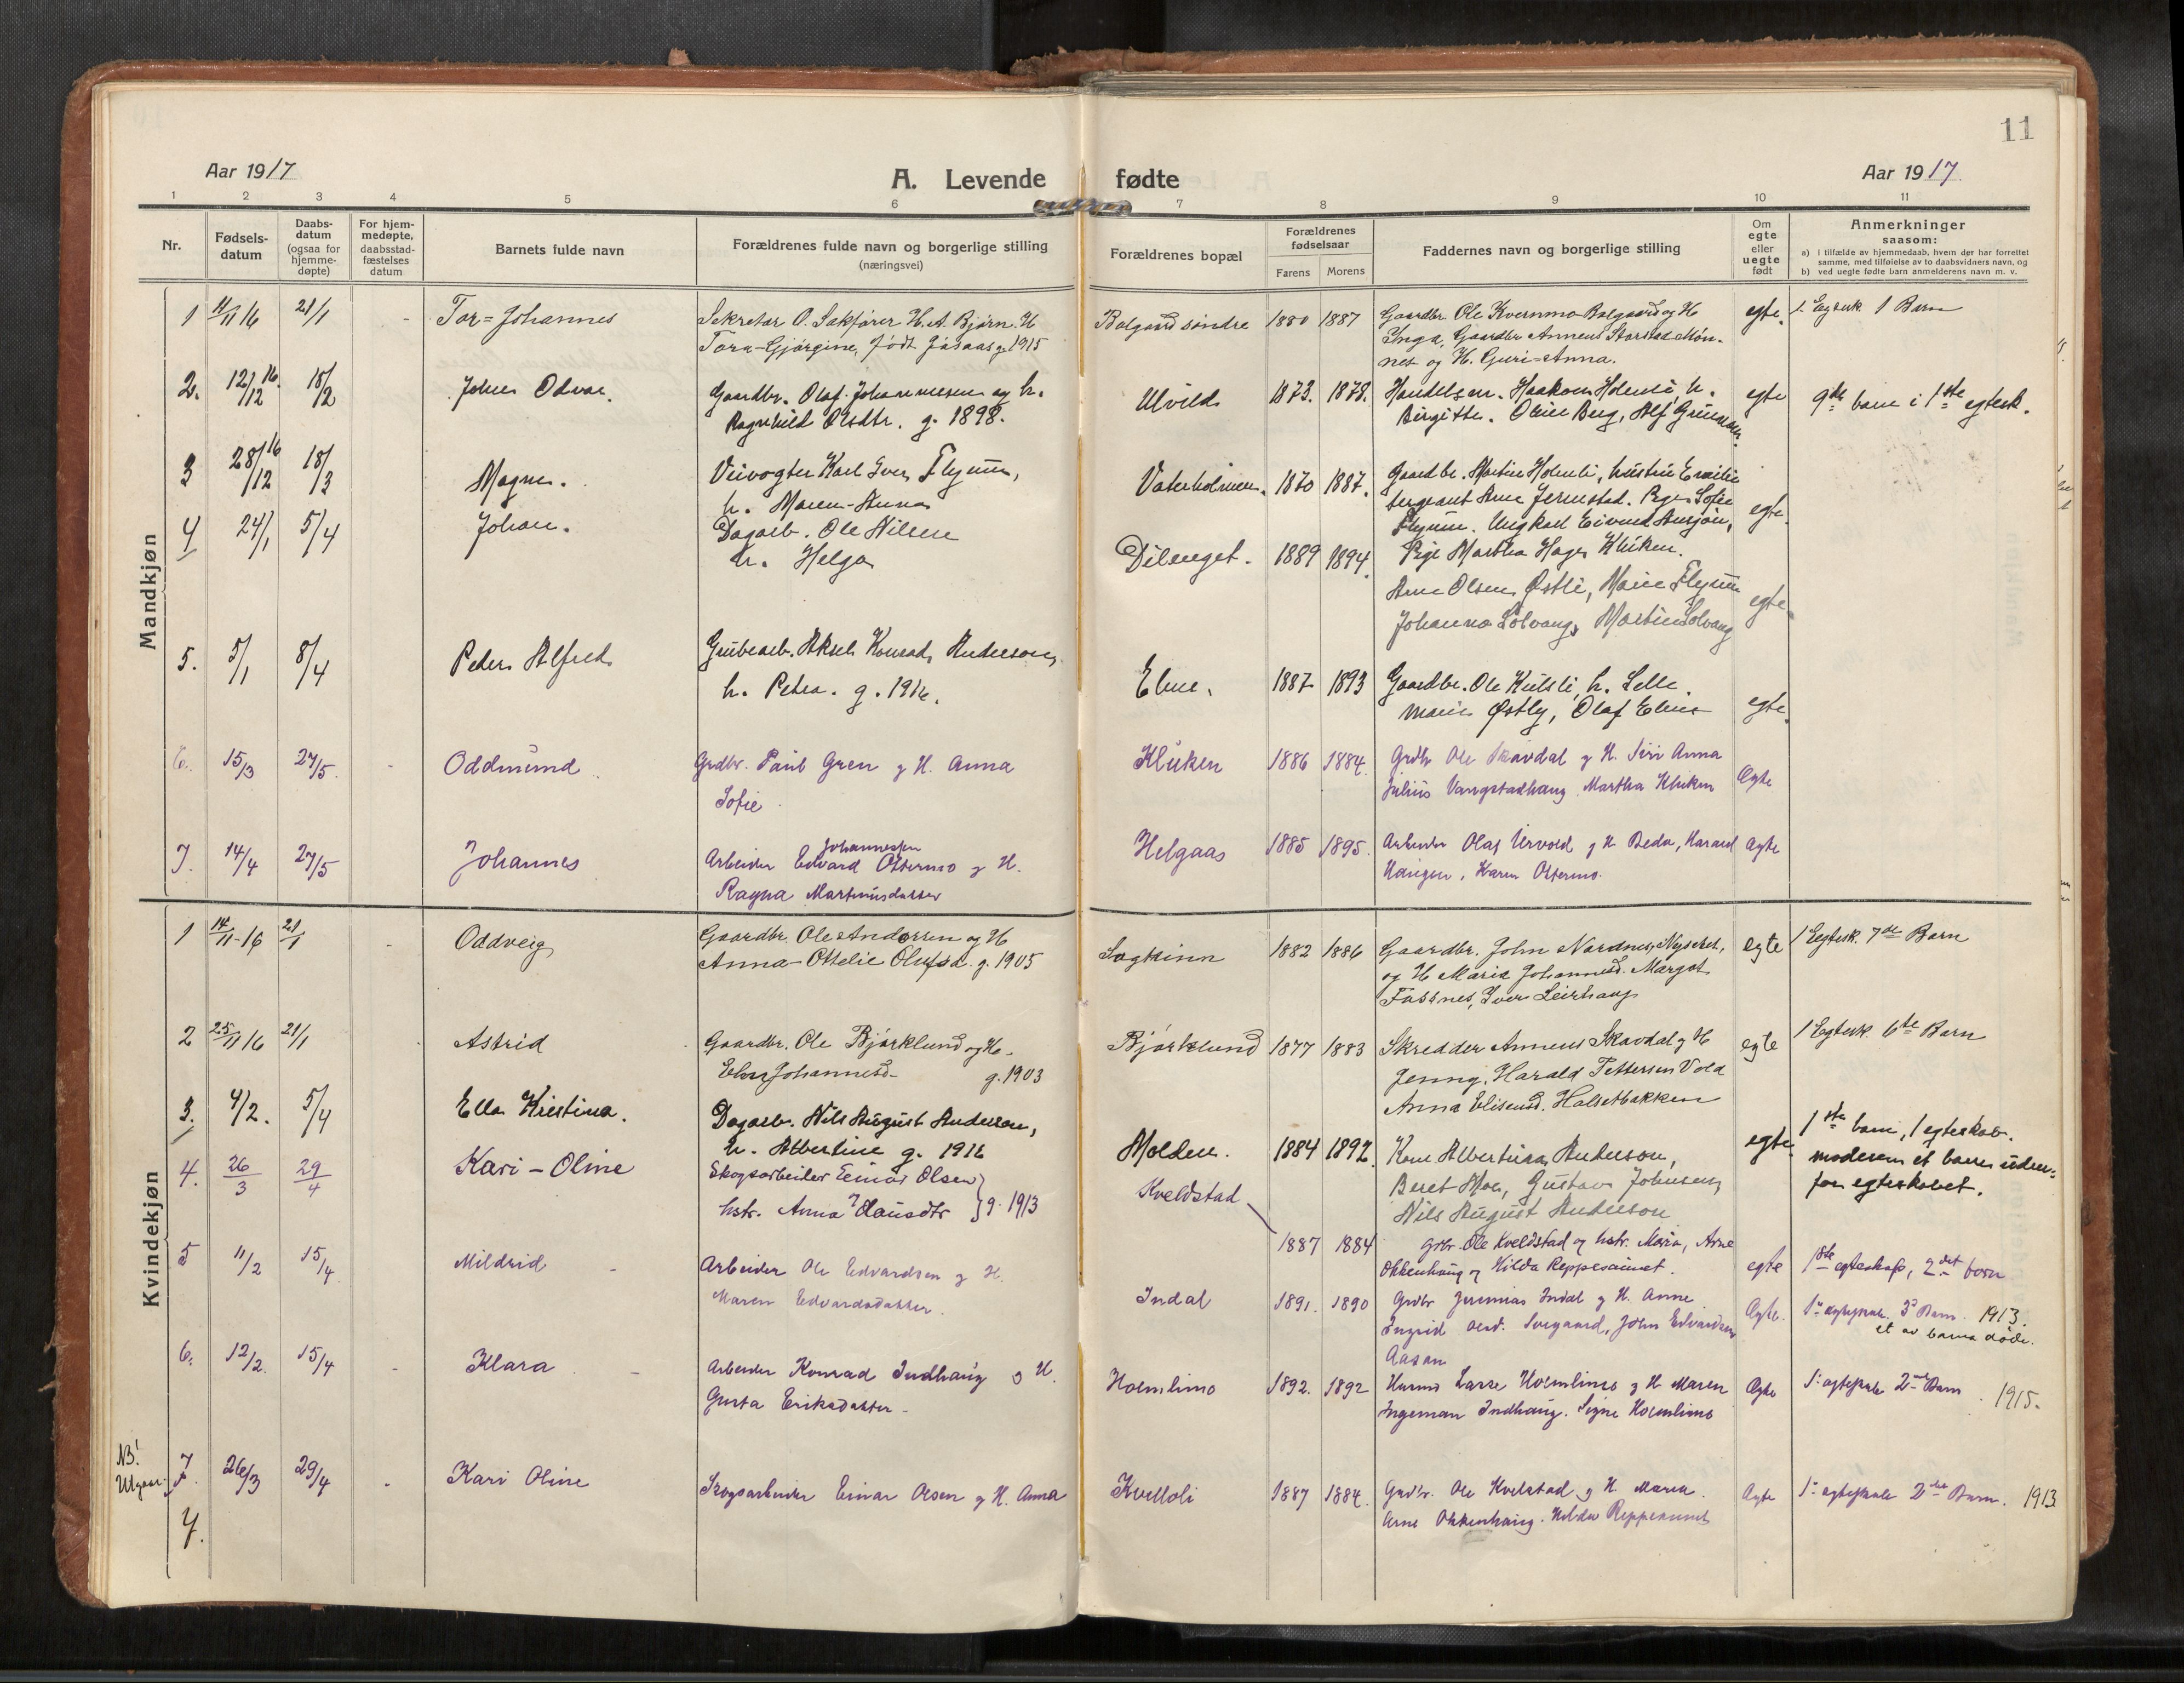 11
Aar 1917
A. Levende fødte
Aar 1917
1 2 3 4 5 6 7 8 9 10 11
Nr.
Fødsels-
datum
Daabs-
datum
(ogsaa for
hjemme-
døpte)
For hjem-
medøpte,
daabsstad-
fæstelses
datum
Barnets fulde navn
Forældrenes fulde navn og borgerlige stilling
(næringsvei)
Forældrenes bopæl
Forældrenes
fødselsaar
Farens Morens
Faddernes navn og borgerlige stilling
Om
egte
eller
uegte
født
Anmerkninger
saasom:
a) i tilfælde av hjemmedaab, hvem der har forrettet
samme, med tilføielse av to daabsvidners navn, og
b) ved uegte fødte barn anmelderens navn m. v.
Mandkjøn
1 11/11 16 21/1 - Tor=Johannes Sekretær O. Sakfører H. A. Bjørn. H Bolgaard søndre 1880 1887 Gaardbr. Ole Kvernmo Bolgaard og H egte. 1. Egtesk. 1 Barn
Tora-Gjørgine, født Jøsaas g. 1915 Inga, Gaardbr Annæus Storstad Møn-
nes og H. Guri=Anna.
2. 12/12 16. 18/2 Johan Odvar. Gaardbr. Olaf Johannesen og h. Ulvild 1873. 1878. Handelsm. Haakon Holmli, h. egte 9de barn i 1ste egtesk.
Ragnhild Olsdtr. g. 1898. Birgitte. Oline Berg, Alf
3 28/12 16 18/3 Magne. Veivogter Karl Iver Flyum, Vaterholmen. 1870 1887. Gaardbr. Martin Holmli, hustru Emilie
h. Maren-Anna Sergeant Arne Jermstad. Pige Sofie egte.
Flyum. Ungkarl Eivind
4 24/1 5/4 Johan. Dagarb. Ole Nilsen Dilenget. 1889 1894. Pige Martha Hage Kluken.
h. Helga Arne Olsen Østli, Marie Flyum egte.
Johanna Solvang, Martin Solvang
5. 5/1 8/4 Peder Alfred Grubearb. Aksel Konrad Anderson, Elnes. 1887 1893 Gaardbr. Ole Kulsli, h. Selle.
h. Petra. g. 1912. Marie Østly, Olaf Elnes egte.
6. 15/3 27/5. - Oddmund. Grdbr. Paul Gren g H. Anna Kluken 1886 1884. Grdbr Ole Skavdal g H. Siri Anna
Sofie. Julius Vangstadhaug Martha Kluken Egte
7. 14/4 27/5 Johannes Arbeider Edvard Johannessen Ottermo g H. Helgaas 1885 1895. Arbeider Olaf Ulvold g H Beda, Harald Egte
Ragna Martinusdatter Karen Ottermo.
Kvindekjøn
1 14/11-16 21/1 - Oddveig Gaardbr. Ole Andersen og H 1882 1886 Gaardbr. John Nordnes, Nyseter, egte 1 Egtesk. 7de Barn
Anna-Ottelie Olufsd. g. 1905 og H Maria Johannesd. Margot
Fossnes, Iver Leirhaug
2 25/11 16 21/1 Astrid Gaardbr. Ole Bjørklund og H- Bjørklund 1877 1883 Skredder Annæus Skavdal g H egte 1 Egtesk. 6te Barn
Elen Johannesd- g. 1903 Jenny, Harald Pettersen Vold
Anna Elisend. Halsetbakken
3. 4/2. 5/4 Ella Kristina. Dagarb. Nils August Anderson, Molden. 1884 1892. Kone Albertina Anderson, egte 1ste barn, 1 egteskab.
h. Albertine g. 1916 Beret Moe, Gustav Johnsen, moderen et barn uden-
Nils August Anderson for egteskabet.
4. 26/3 29/4 Kari - Oline Skogsarbeider Einar Olsen Kveldstad 1887 1884 Grbr. Ole Kveldstad og hstr. Maria, Arne
hstr. Anna Clausdtr } g. 1913 Okkenhaug og Hilda Reppesaunet. egte 1ste egteskap, 2det barn
5 11/2 15/4 Mildrid - Arbeider Ole Edvardsen g H. Indal 1891. 1890 Grdbr Jeremias Indal g H. Anne Egte. 1ste egteskab. 3d Barn. 1913.
Maren Edvardsdatter. Ingrid Olsd. Svegaard, John Edvardsen et av barna døde.
Aasan
6. 12/2. 15/4 - Klara - Arbeider Konrad Indhaug g H. Holmlimo 1892. 1892 Husmd Lasse Holmlimo g H Maren Egte 1ste egteskab 2net Barn. 1915.
Gusta Eriksdatter- Ingeman Indhaug. Signe Holmlimo
NB!
Utgaar.
7. 26/3 29/4 - Kari Oline Skogsarbeider Einar Olsen g H. Anna Kvelloli 1887 1884. Grdbr. Ole Kvelstad g H. Maren. Egte 1ste egteskab 2det Barn. 1913
Arne Okkenhaug. Hilda Reppesaunet
7.